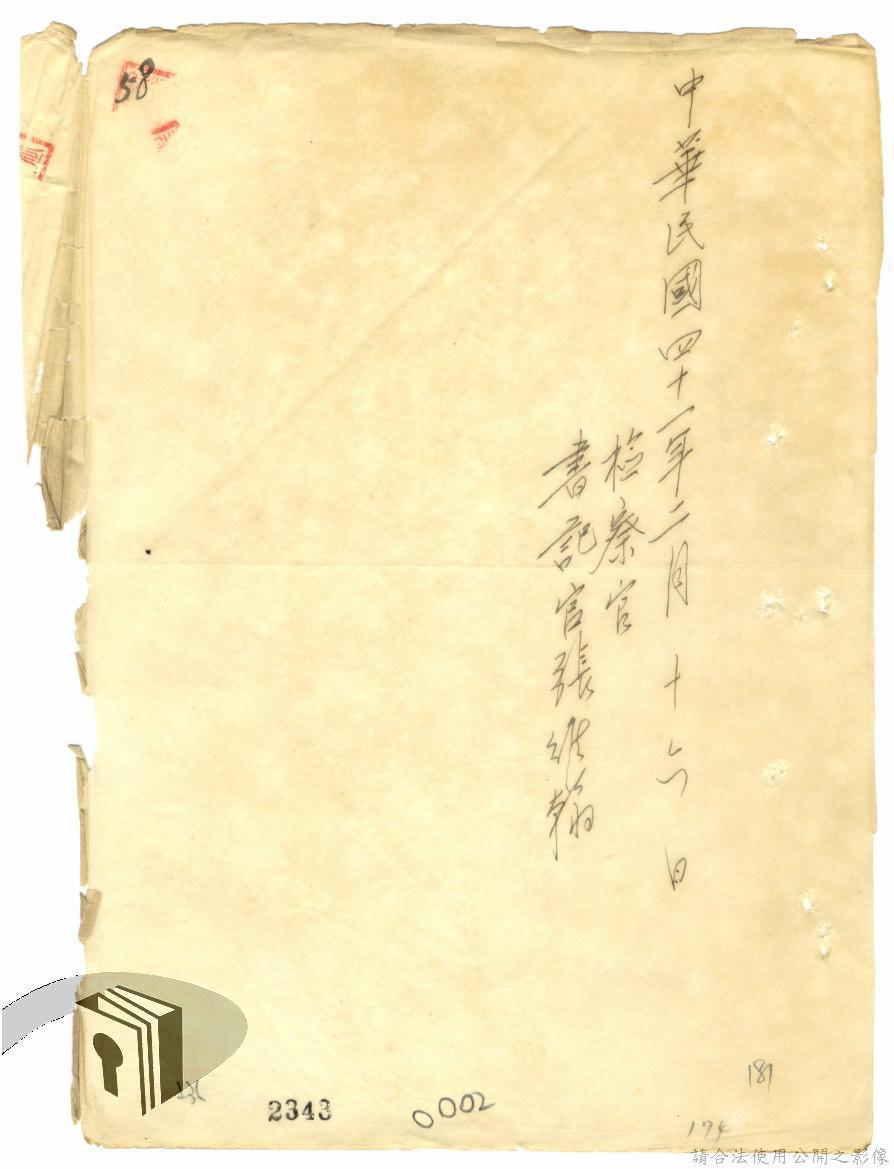 58
中華民國四十一年二月十六日
檢察官
書記官張維翰
181
2343
0002
174
請合法使用公開之影像